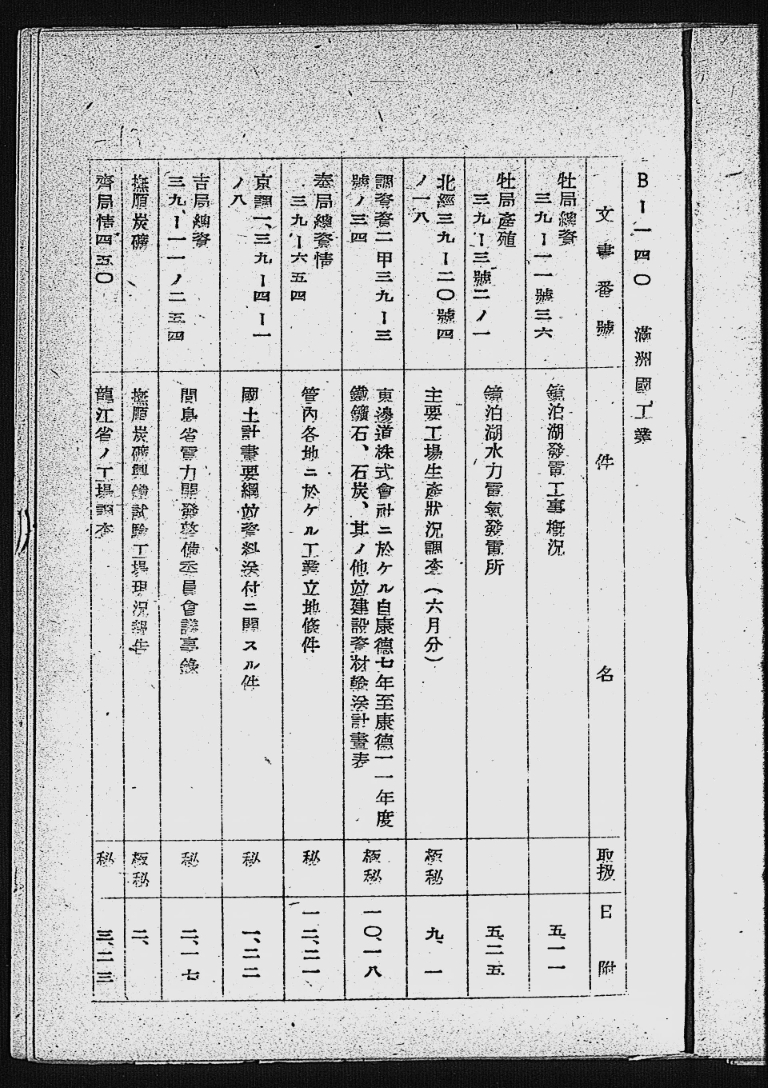 B－一四〇　滿洲國工業
文書番號　件名　取扱　日附
牡局總資
三九－一一號三六
鏡泊湖發電工事槪況
五、一一
牡局產殖
三九－三號二ノ一
鏡泊湖水力電氣發電所
五、二五
北經三九－二〇號四
ノ一八
主要工場生產狀況調査（六月分）
極秘
九、一
調資資二甲三九－三
號ノ三四
東邊道株式會社ニ於ケル自康德七年至康德一一年度
鐵鑛石、石炭、其ノ他竝建設資材輸送計畫表
極秘
一〇、一八
奉局總資情
三九－六五四
管內各地ニ於ケル工業立地條件
秘
一二、二一
京調一、三九－四－一
ノ八
國土計畫要綱竝資料送付ニ關スル件
秘
一、二二
吉局總資
三九、－一一ノ二五四
間島省電力開發整備委員會議事錄
秘
二、一七
撫順炭礦
撫順炭礦製鐵試驗工場現況報告
極秘
二、
齊局情四五〇
龍江省ノ工場調査
秘
三、二三